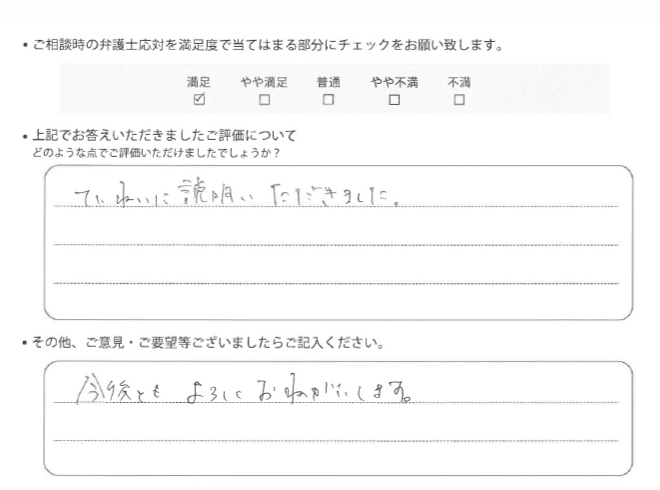 • ご相談時の弁護士応対を満足度で当てはまる部分にチェックをお願い致します。
満足 やや満足 普通 やや不満 不満
☑ ☐ ☐ ☐ ☐
• 上記でお答えいただきましたご評価について
どのような点でご評価いただけましたでしょうか？
ていねいに説明いただきました。
• その他、ご意見・ご要望等ございましたらご記入ください。
今後ともよろしくおねがいします。